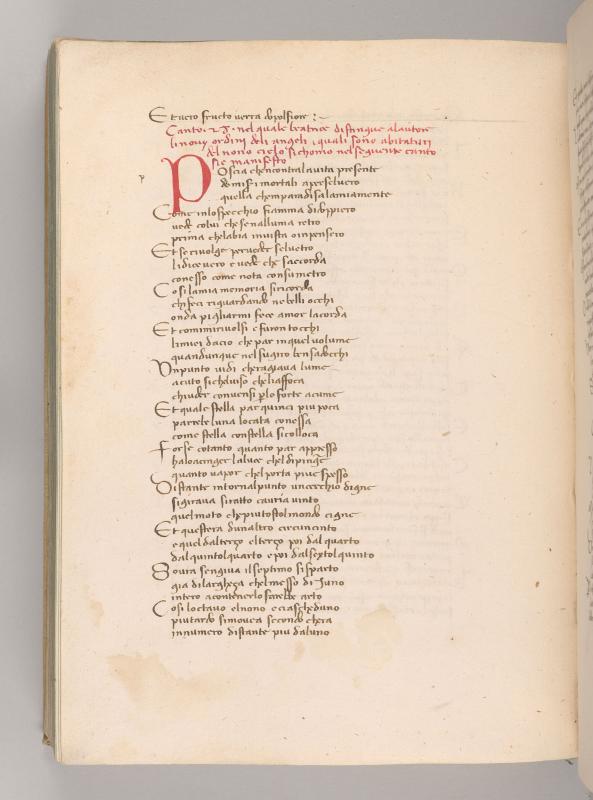 Et vero fructo verra dopolfiore :~
Canto · 28 · nel quale beatrice distingue alautore
li novy ordini deli angeli i quali sono abitaturi
del nono cielo sichomo nel sequente canto
sie manifesto
p
Poscia chencontralavita presente
de miseri mortali aperselvero
quella chemparadisalamiamente
Come inlospecchio fiamma didoppiero
vede colui chesenalluma retro
prima chelabia invista oinpensero
Et serivolge pervedere selvetro
lidicevero e vede che saccorda
conesso come nota consumetro
Cosi lamia memoria siricorda
chifeci riguardando ne belli occhi
onda pigliarmi fece amor lacorda
Et comimirivolsi e furon tocchi
limiei dacio chepar inquel volume
quandunque nelsugiro bensadocchi
Un punto vidi cheragiava lume
acuto sichelviso chellaffoca
chiuder convensi perlo forte acume
Et quale stella par quinci piu poca
parrebe luna locata conessa
come stella constella sicolloca
Forse cotanto quanto par appresso
halo acinger laluce cheldipinge
quanto vapor chelporta piue spesso
Distante intornalpunto uncerchio digne
sigirava siratto cauria vinto
quelmoto chepiutostolmondo cigne
Et questera dunaltro circuncinto
e quel dalterço elterço poi dal quarto
dal quintolquarto e poi dalsextolquinto
Sovra sengiva ilseptimo sisparto
gia dilargheça chelmesso di Juno
intero acontenerlo sarebbe arto
Cosi loctavo elnono e ciascheduno
piutardo simovea secondo chera
innumero distante piu daluno